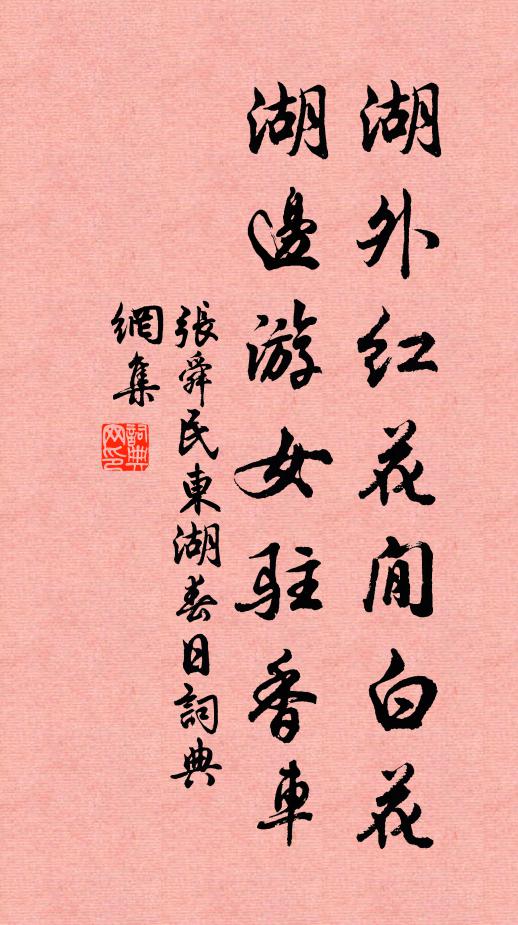 湖外红花間白花
湖邊游女駐香車
張舜民東湖春日詞典
網集
詞典網印